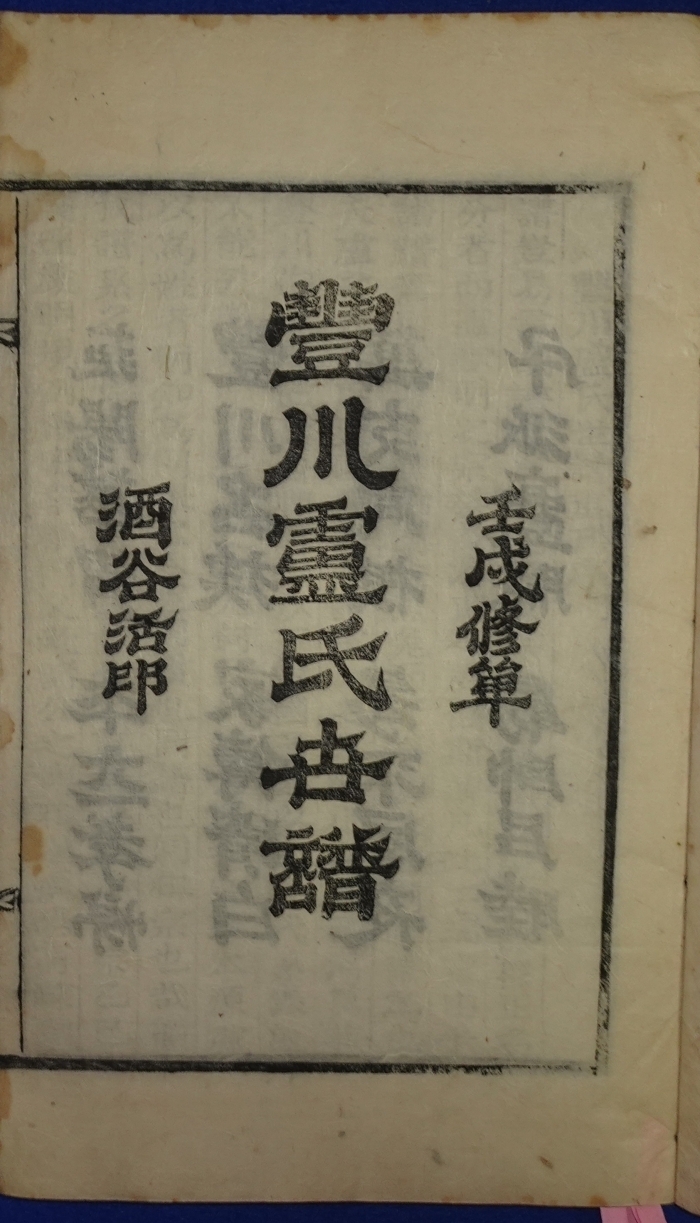 壬戌修單
豐川盧氏世譜
酒谷活印